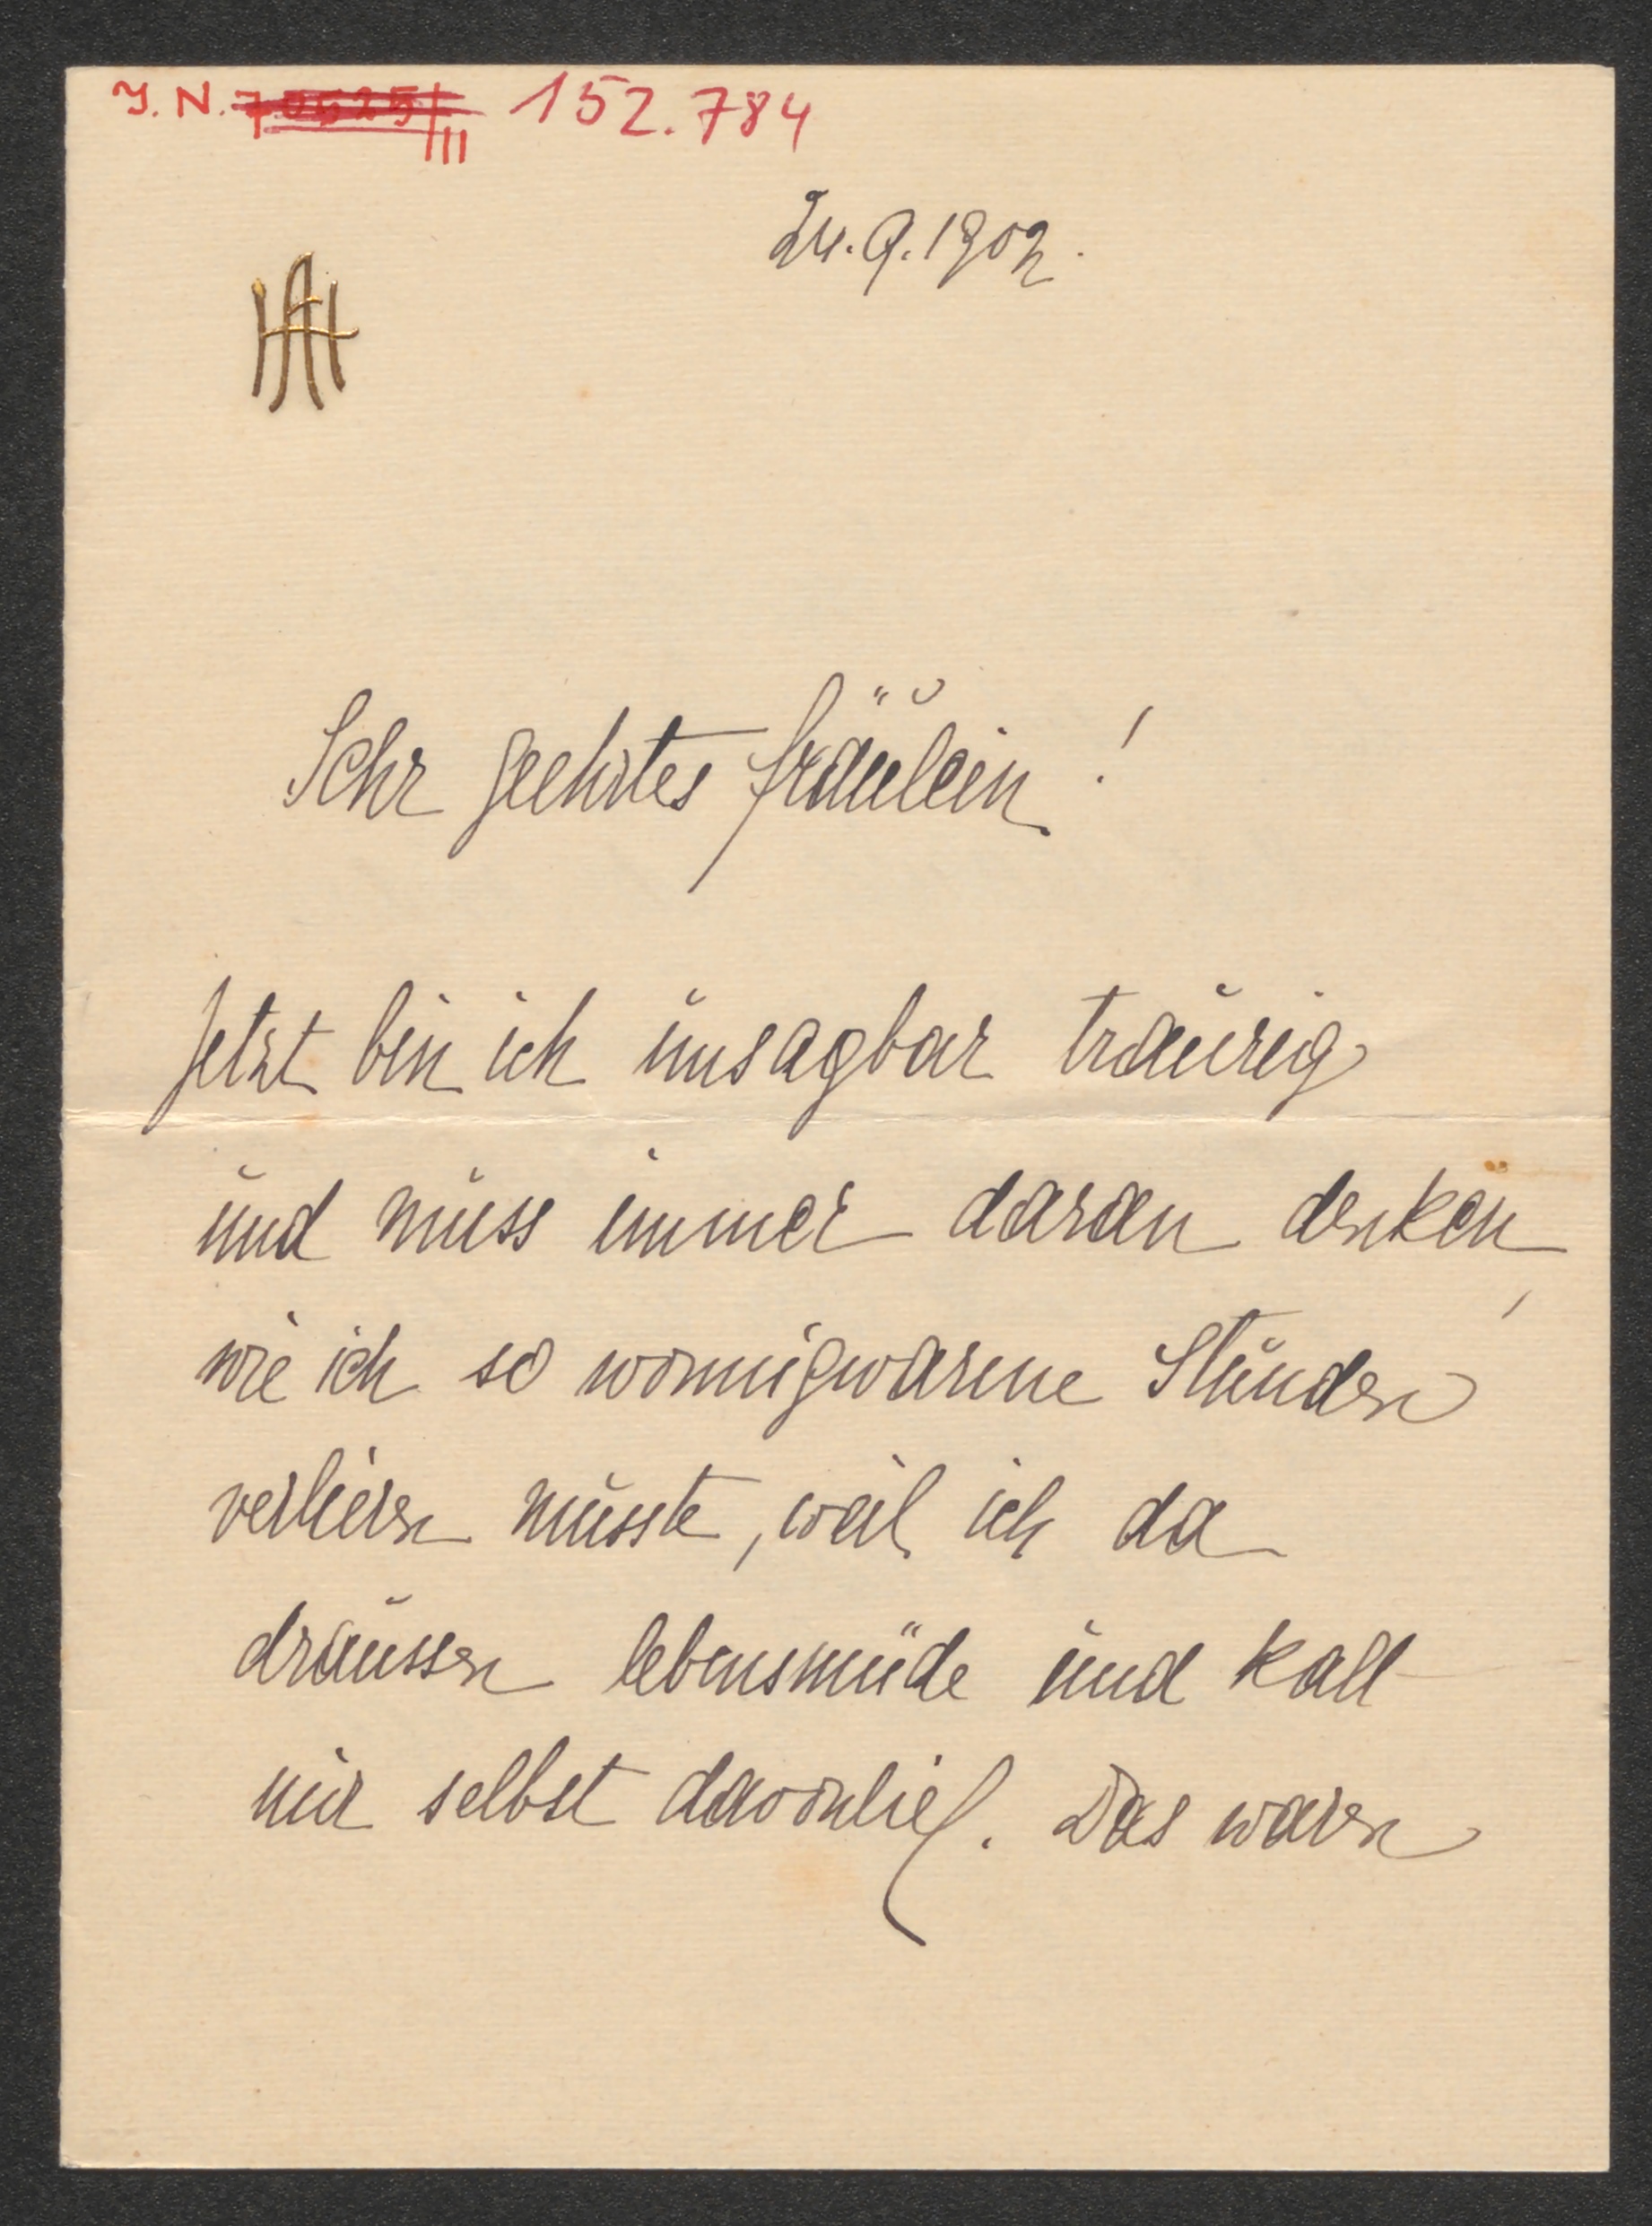 J. N. 152.784
24.9.1902.
Sehr geehrtes Fräulein!
Jetzt bin ich unsagbar traurig
und muss immer daran denken,
wie ich so wonnigwarme Stunden
verlieren musste, weil ich da
draussen lebensmüde und kalt
mir selbst davonlief. Das waren